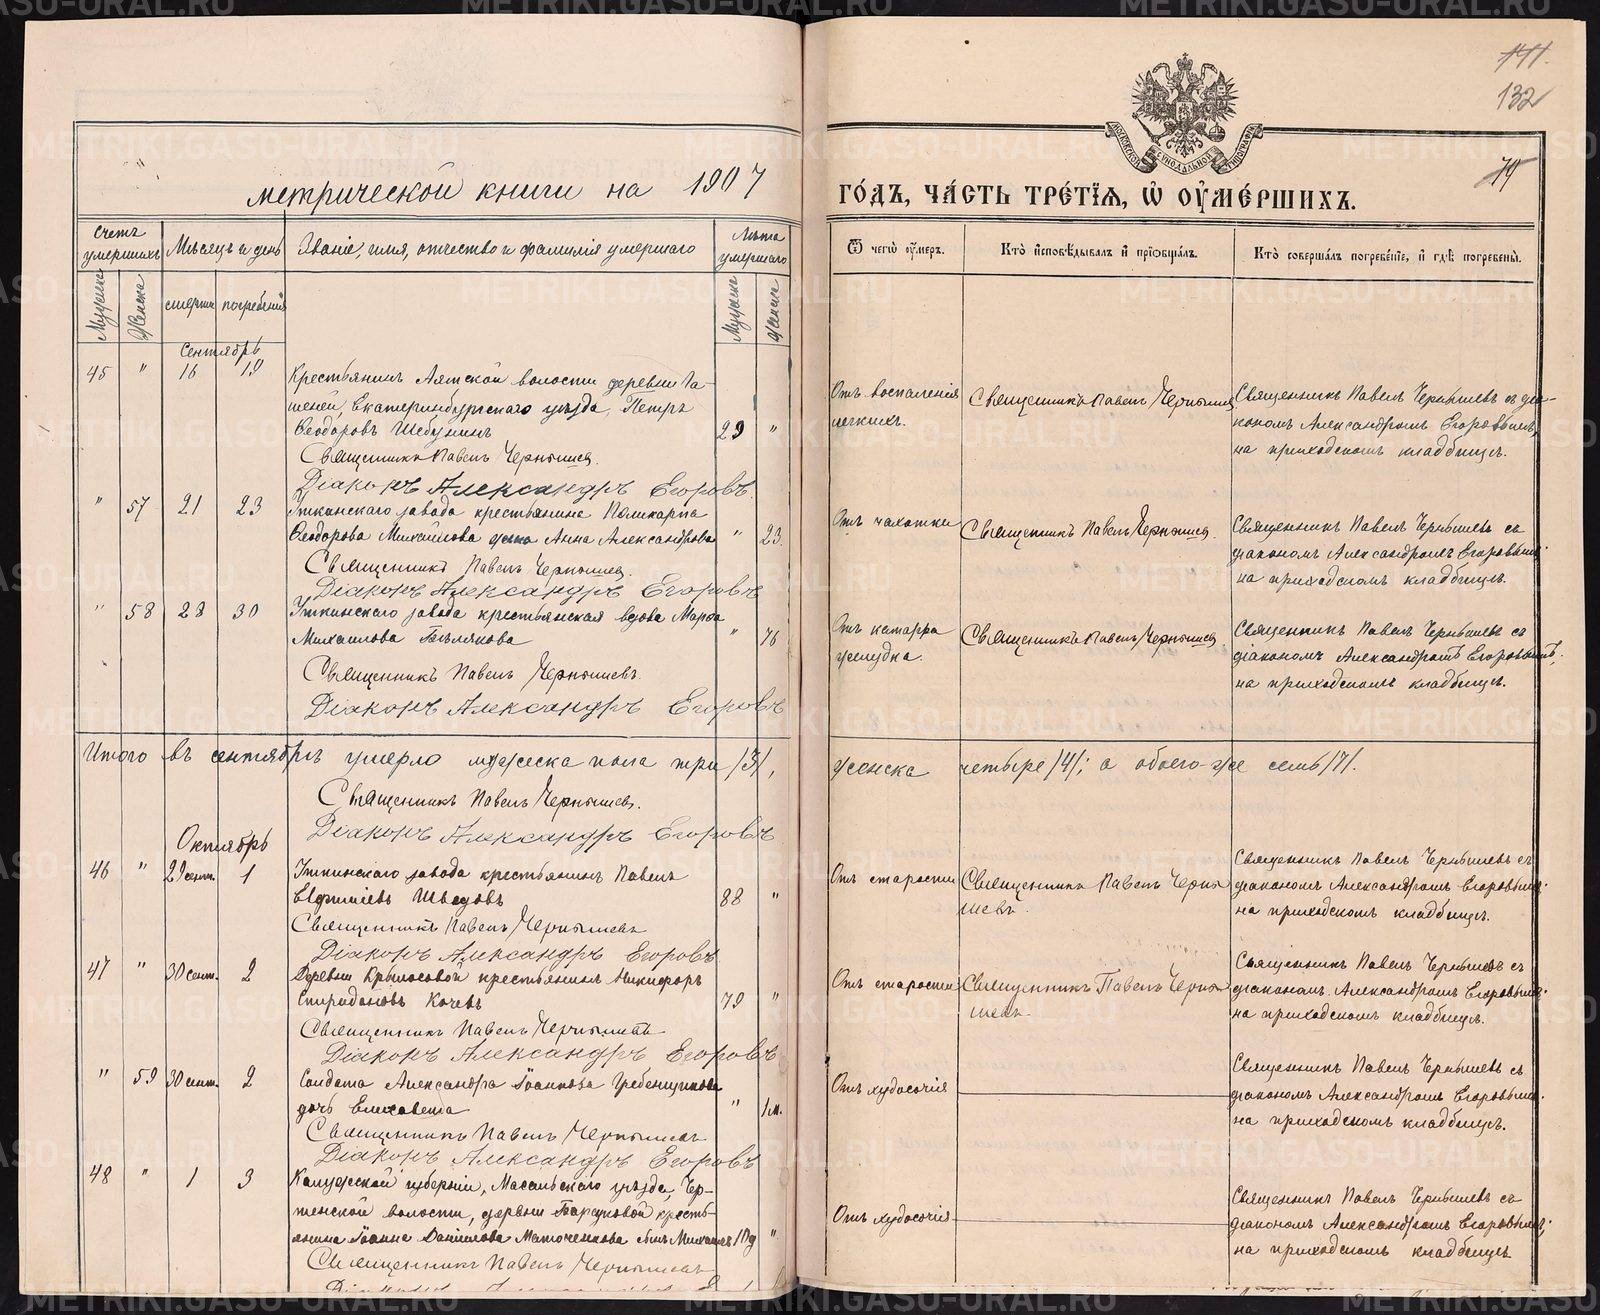 метрической книги на 1907
Счетъ умершихъ
Мѣсяцъ и день
Званіе, имя, отчество и фамилія умершаго
Лѣта умершаго
Мужска
Женска
смерти
погребенія
Мужска
Женска
Сентябрь
45 " 16 19
Крестьянинъ Аятской волости деревни
Екатеринбургскаго уѣзда, Петръ
Ѳеодоровъ Шебунинъ 29 "
Священникъ Павелъ Чернышев.
Діаконъ Александръ Егоровъ.
" 57 21 23
Уткинскаго завода крестьянина Поликарпа
Ѳеодорова Михайлова жена Анна Александрова " 23.
Священникъ Павелъ Чернышев.
Діаконъ Александръ Егоровъ
" 58 28 30
Уткинскаго завода крестьянская вдова Марѳа
Михаилова Бѣлякова " 76
Священникъ Павелъ Чернышевъ.
Діаконъ Александръ Егоровъ
Итого въ сентябрѣ умерло мужеска пола три /3/,
Священникъ Павелъ Чернышев.
Діаконъ Александръ Егоровъ
Октябрь
46 " 29 сент. 1
Уткинскаго завода крестьянинъ Павелъ
Евфиміевъ Шведовъ 88 "
Священникъ Павелъ Чернышевъ
Діаконъ Александръ Егоровъ
47 " 30 сент. 2
Деревни Крылосовой крестьянинъ Никифоръ
Спиридоновъ Кочевъ 79 "
Священникъ Павелъ Чернышевъ
Діаконъ Александръ Егоровъ
" 59 30 сент. 2
Солдата Александра Іоаннова Гребенщикова
дочь Елисавета " 1 м.
Священникъ Павелъ Чернышевъ
Діаконъ Александръ Егоровъ
48 " 1 3
Калужской губерніи, Масальскаго уѣзда, Чер-
тенской волости, деревни Барсуковой кресть-
янина Іоанна Даніилова Маточенкова сынъ Михаилъ "
Священникъ Павелъ Чернышевъ
141.
132
МОСКОВСКОЙ СѴНОДАЛЬНОЙ ТИПОГРАФІИ
ГО́ДЪ, ЧА́СТЬ ТРЕ́ТІѦ, Ѡ҆ ОУ҆МЕ́РШИХЪ.
Ѿ чегѡ̀ оу҆́меръ.
Кто̀ и҆сповѣ́дывалъ и҆ прїѻбща́лъ.
Кто̀ соверша́лъ погребе́нїе, и҆ гдѣ̀ погребены̀.
Отъ воспаленія
легкихъ.
Священникъ Павелъ Чернышев
Священникъ Павелъ Чернышевъ съ діа-
кономъ Александромъ Егоровымъ,
на приходскомъ кладбищѣ.
Отъ чахотки
Священникъ Павелъ Чернышев.
Священникъ Павелъ Чернышевъ съ
діакономъ Александромъ Егоровымъ.
на приходскомъ кладбищѣ.
Отъ катарра
желудка.
Священникъ Павелъ Чернышев
Священникъ Павелъ Чернышевъ съ
діакономъ Александромъ Егоровымъ,
на приходскомъ кладбищѣ.
женска четыре /4/; а обоего же семь /7/.
Отъ старости
Священникъ Павелъ Черны
шевъ.
Священникъ Павелъ Чернышевъ съ
діакономъ Александромъ Егоровымъ.
на приходскомъ кладбищѣ.
Отъ старости
Священникъ Павелъ Черны
шевъ
Священникъ Павелъ Чернышевъ съ
діакономъ Александромъ Егоровымъ.
на приходскомъ кладбищѣ.
Отъ худосочія
Священникъ Павелъ Чернышевъ съ
діакономъ Александромъ Егоровымъ.
на приходскомъ кладбищѣ.
Отъ худосочія
Священникъ Павелъ Чернышевъ съ
діакономъ Александромъ Егоровымъ,
на приходскомъ кладбищѣ
METRIKI.GASO-URAL.RU